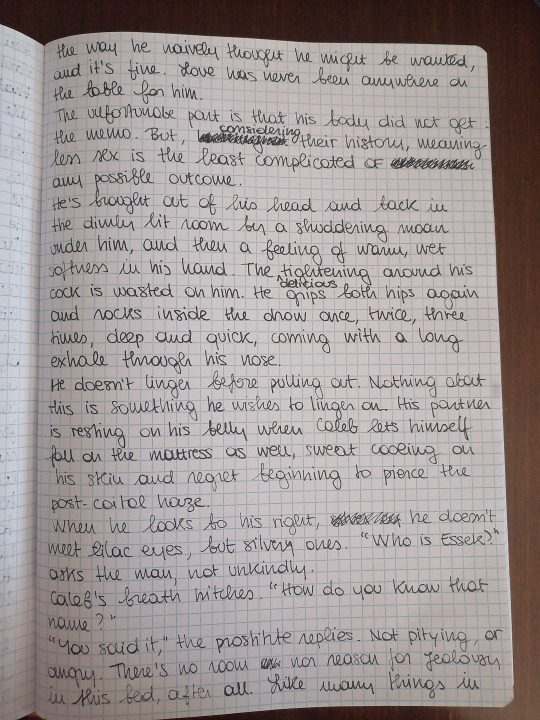 the way he naively thought he might be wanted,
and it's fine. Love has never been anywhere on
the table for him.
The unfortunate part is that his body did not get
the memo. But, considering their history, meaning-
less sex is the least complicated of
any possible outcome.
He's brought out of his head and back in
the dimly lit room by a shuddering moan
under him, and then a feeling of warm, wet
softness in his hand. The delicious tightening around his
cock is wasted on him. He grips both hips again
and rocks inside the drow once, twice, three
times, deep and quick, coming with a long
exhale through his nose.
He doesn't linger before pulling out. Nothing about
this is something he wishes to linger on. His partner
is resting on his belly when Caleb lets himself
fall on the mattress as well, sweat cooling on
his skin and regret beginning to pierce the
post-coital haze.
When he looks to his right, he doesn't
meet lilac eyes, but silvery ones. "Who is Essek?"
asks the man, not unkindly.
Caleb's breath hitches. "How do you know that
name?"
"You said it," the prostitute replies. Not pitying, or
angry. There's no room nor reason for jealousy
in this bed, after all. Like many things in